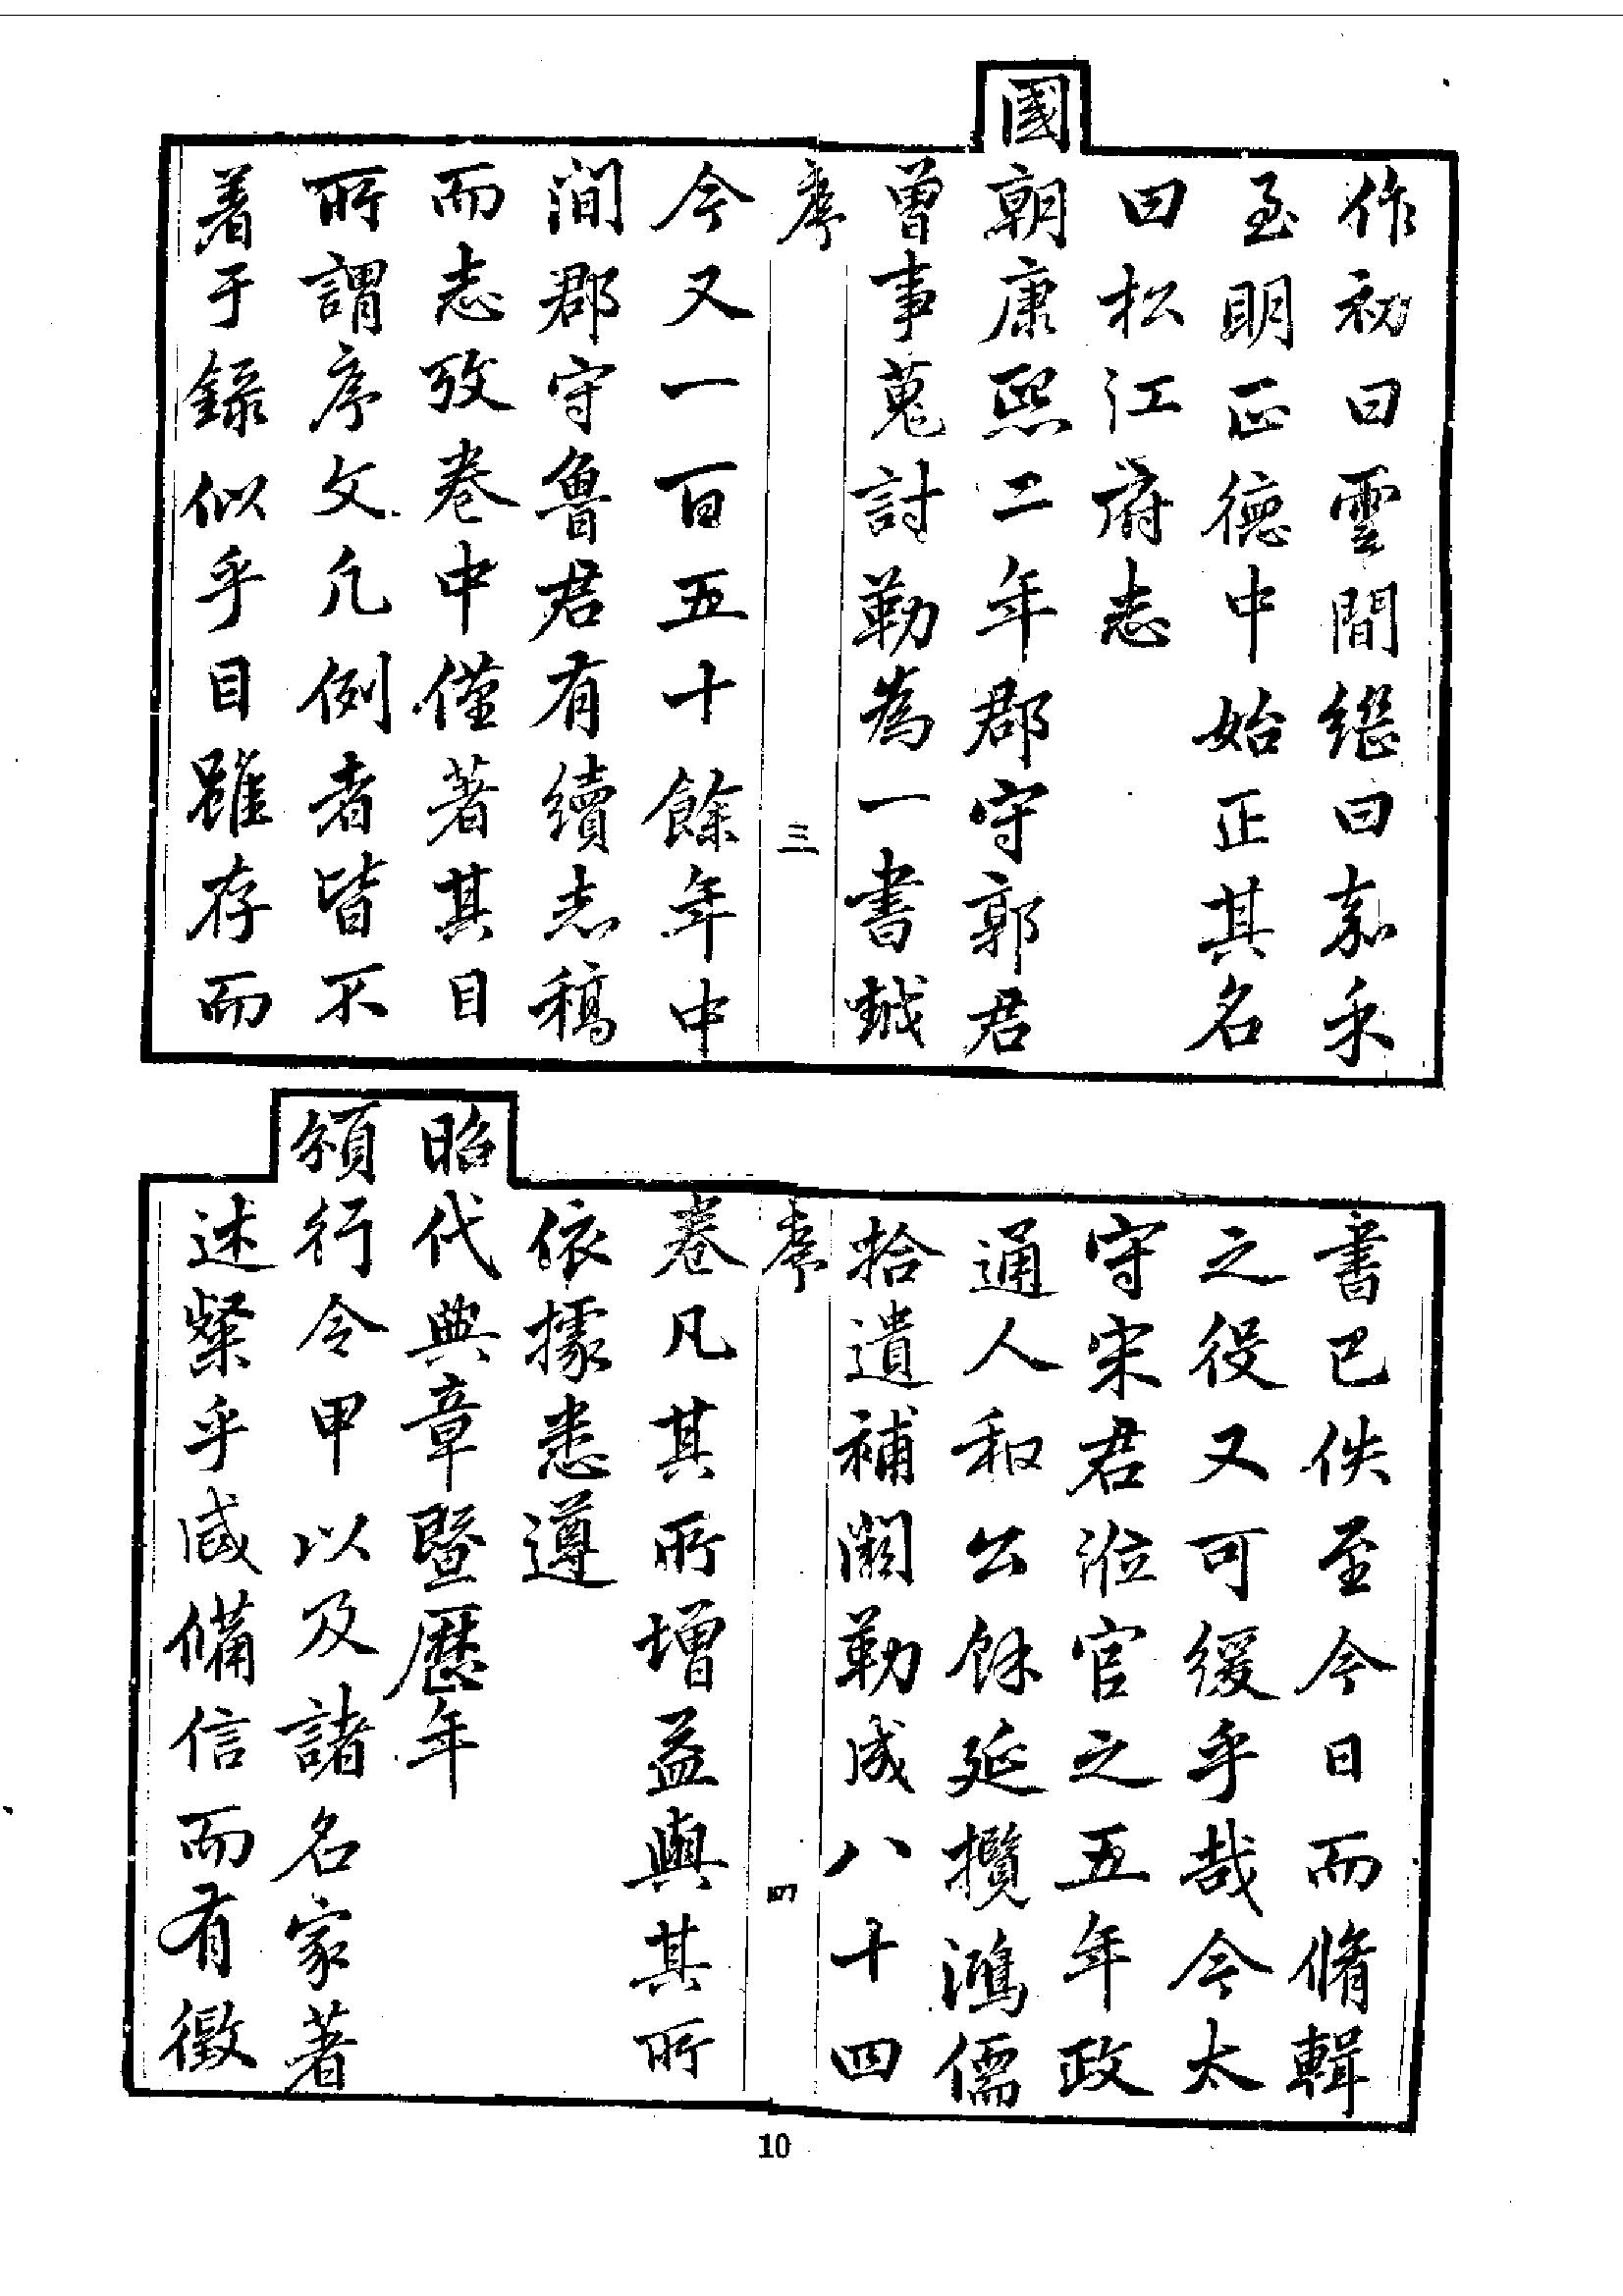 作初曰雲間繼曰嘉禾
至明正德中始正其名
曰松江府志
國朝康熙二年郡守郭君
曾事蒐討勒為一書越
序
三
今又一百五十餘年中
間郡守魯君有續志稿
而志攷卷中僅著其目
所謂序文凡例者皆不
着于錄似乎目雖存而
書已佚至今日而脩輯
之役又可緩乎哉今太
守宋君涖官之五年政
通人和公餘延攬鴻儒
拾遺補闕勒成八十四
序
四
卷凡其所增益與其所
依據悉遵
昭代典章暨歷年
頒行令甲以及諸名家著
述粲乎咸備信而有徵
10